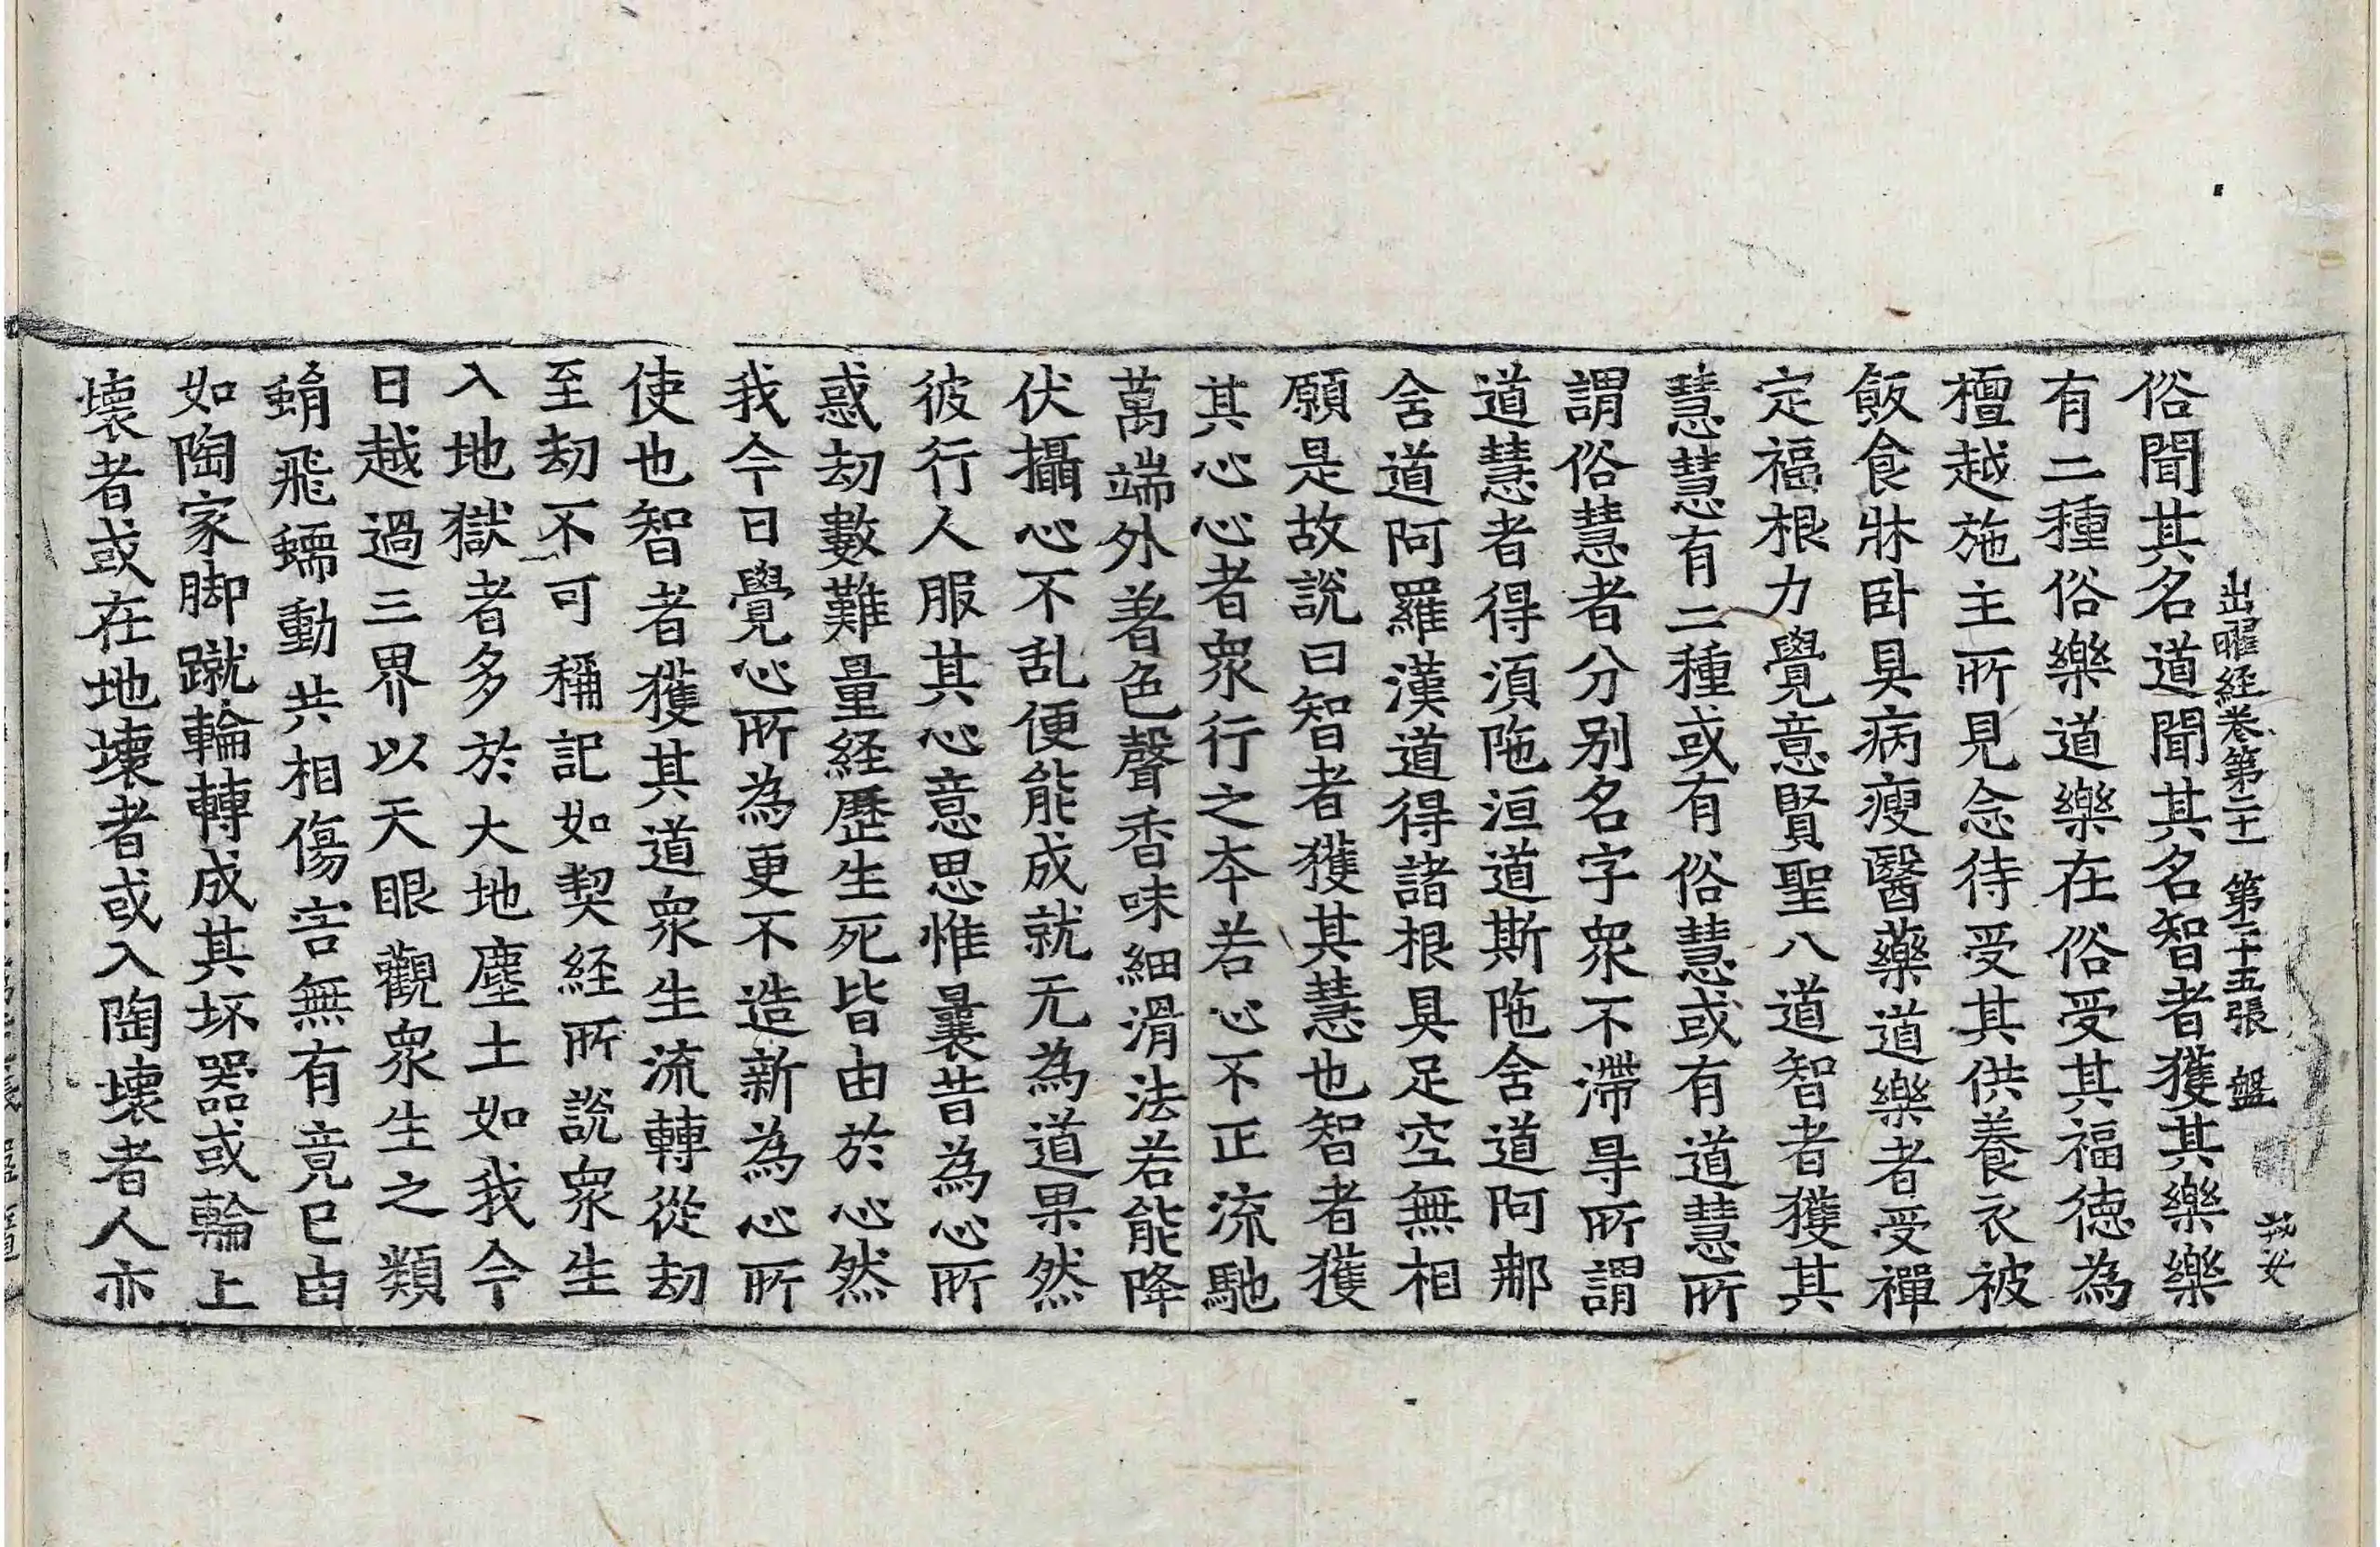 出曜経卷第二十一 第二十五張 盤
俗聞其名道聞其名智者獲其樂樂
有二種俗樂道樂在俗受其福徳為
檀越施主所見念待受其供養衣被
飯食牀卧具病瘦醫藥道樂者受禪
定福根力覺意賢聖八道智者獲其
慧慧有二種或有俗慧或有道慧所
謂俗慧者分別名字衆不滯㝵所謂
道慧者得須陁洹道斯陁舍道阿那
舍道阿羅漢道得諸根具足空無相
願是故說曰智者獲其慧也智者獲
其心心者衆行之夲若心不正流馳
萬端外著色聲香味細滑法若能降
伏攝心不乱便能成就无為道果然
彼行人服其心意思惟曩昔為心所
惑刧數難量経歷生死皆由於心然
我今日覺心所為更不造新為心所
使也智者獲其道衆生流轉從刧
至刧不可稱記如契経所說衆生
入地獄者多於大地塵土如我今
日越過三界以天眼觀衆生之類
蜎飛蠕動共相傷害無有竟已由
如陶家脚蹴輪轉成其坏器或輪上
壊者或在地壊者或入陶壊者人亦